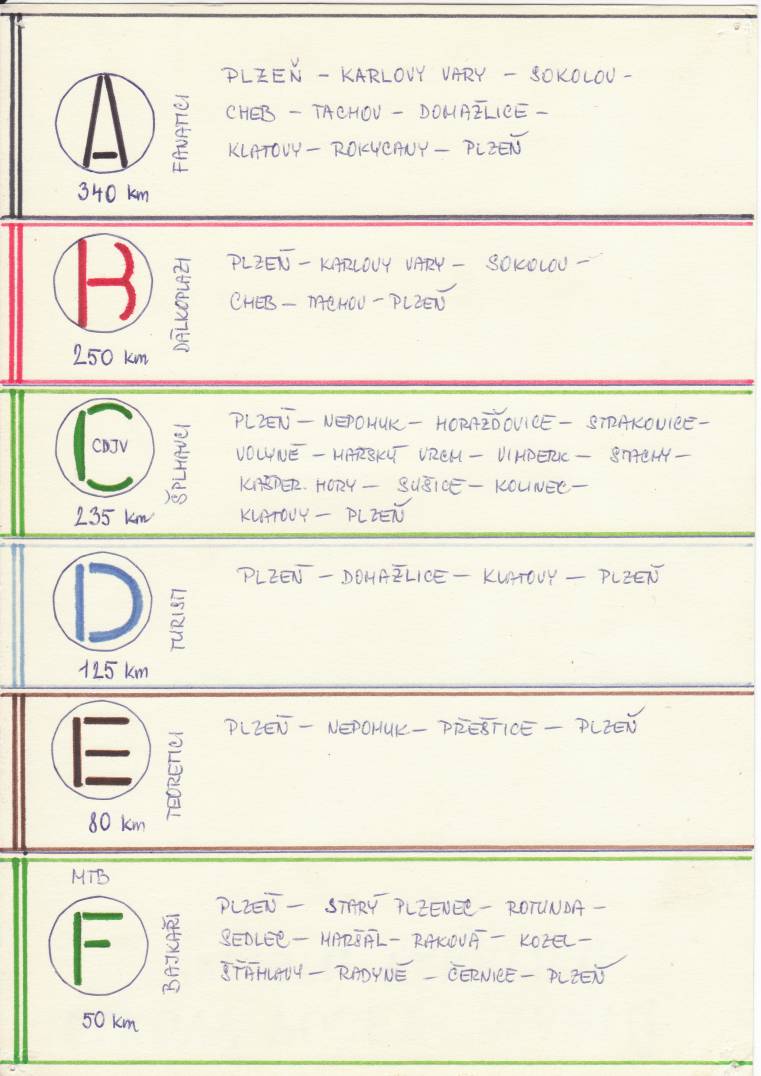 A
340 km
FANATICI
PLZEŇ – KARLOVY VARY – SOKOLOV –
CHEB – TACHOV – DOMAŽLICE –
KLATOVY – ROKYCANY – PLZEŇ
B
250 km
DÁLKOPLAZI
PLZEŇ – KARLOVY VARY – SOKOLOV –
CHEB – TACHOV – PLZEŇ
C
CDJV
235 km
ŠPLHAVCI
PLZEŇ – NEPOMUK – HORAŽĎOVICE – STRAKONICE –
VOLYNĚ – MAŘSKÝ VRCH – VIMPERK – STACHY –
KAŠPER. HORY – SUŠICE – KOLINEC –
KLATOVY – PLZEŇ
D
125 km
TURISTI
PLZEŇ – DOMAŽLICE – KLATOVY – PLZEŇ
E
80 km
TEORETICI
PLZEŇ – NEPOMUK – PŘEŠTICE – PLZEŇ
MTB
F
50 km
BAJKAŘI
PLZEŇ – STARÝ PLZENEC – ROTUNDA –
SEDLEC – MARŠÁL – RAKOVÁ – KOZEL –
ŠŤÁHLAVY – RADYNĚ – ČERNICE – PLZEŇ